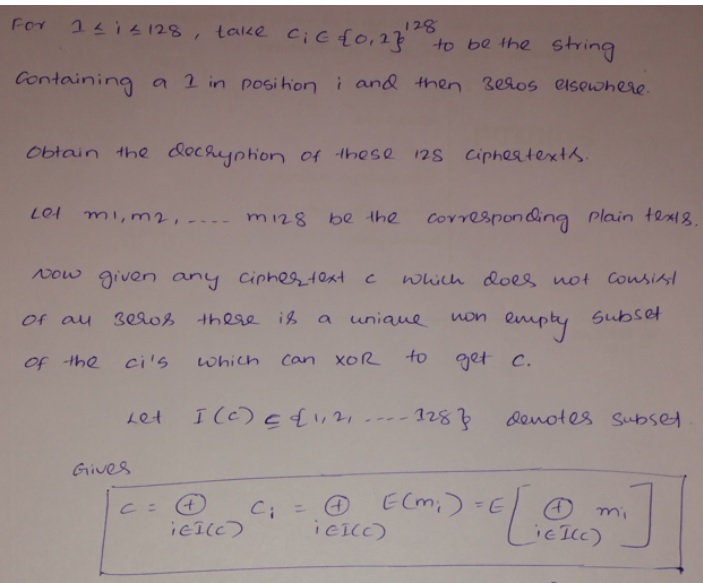 For 1 ≤ i ≤ 128, take ci ∈ {0,1}^128 to be the string
Containing a 1 in position i and then zeros elsewhere.
Obtain the decryption of these 128 ciphertexts.
Let m1, m2, ---- m128 be the corresponding plain texts.
Now given any ciphertext c which does not consist
of all zeros there is a unique non empty subset
of the ci's which can XOR to get c.
Let I(c) ⊆ {1,2, ---- 128} denotes subset.
Gives
c = ⊕_{i∈I(c)} Ci = ⊕_{i∈I(c)} E(mi) = E[ ⊕_{i∈I(c)} mi ]